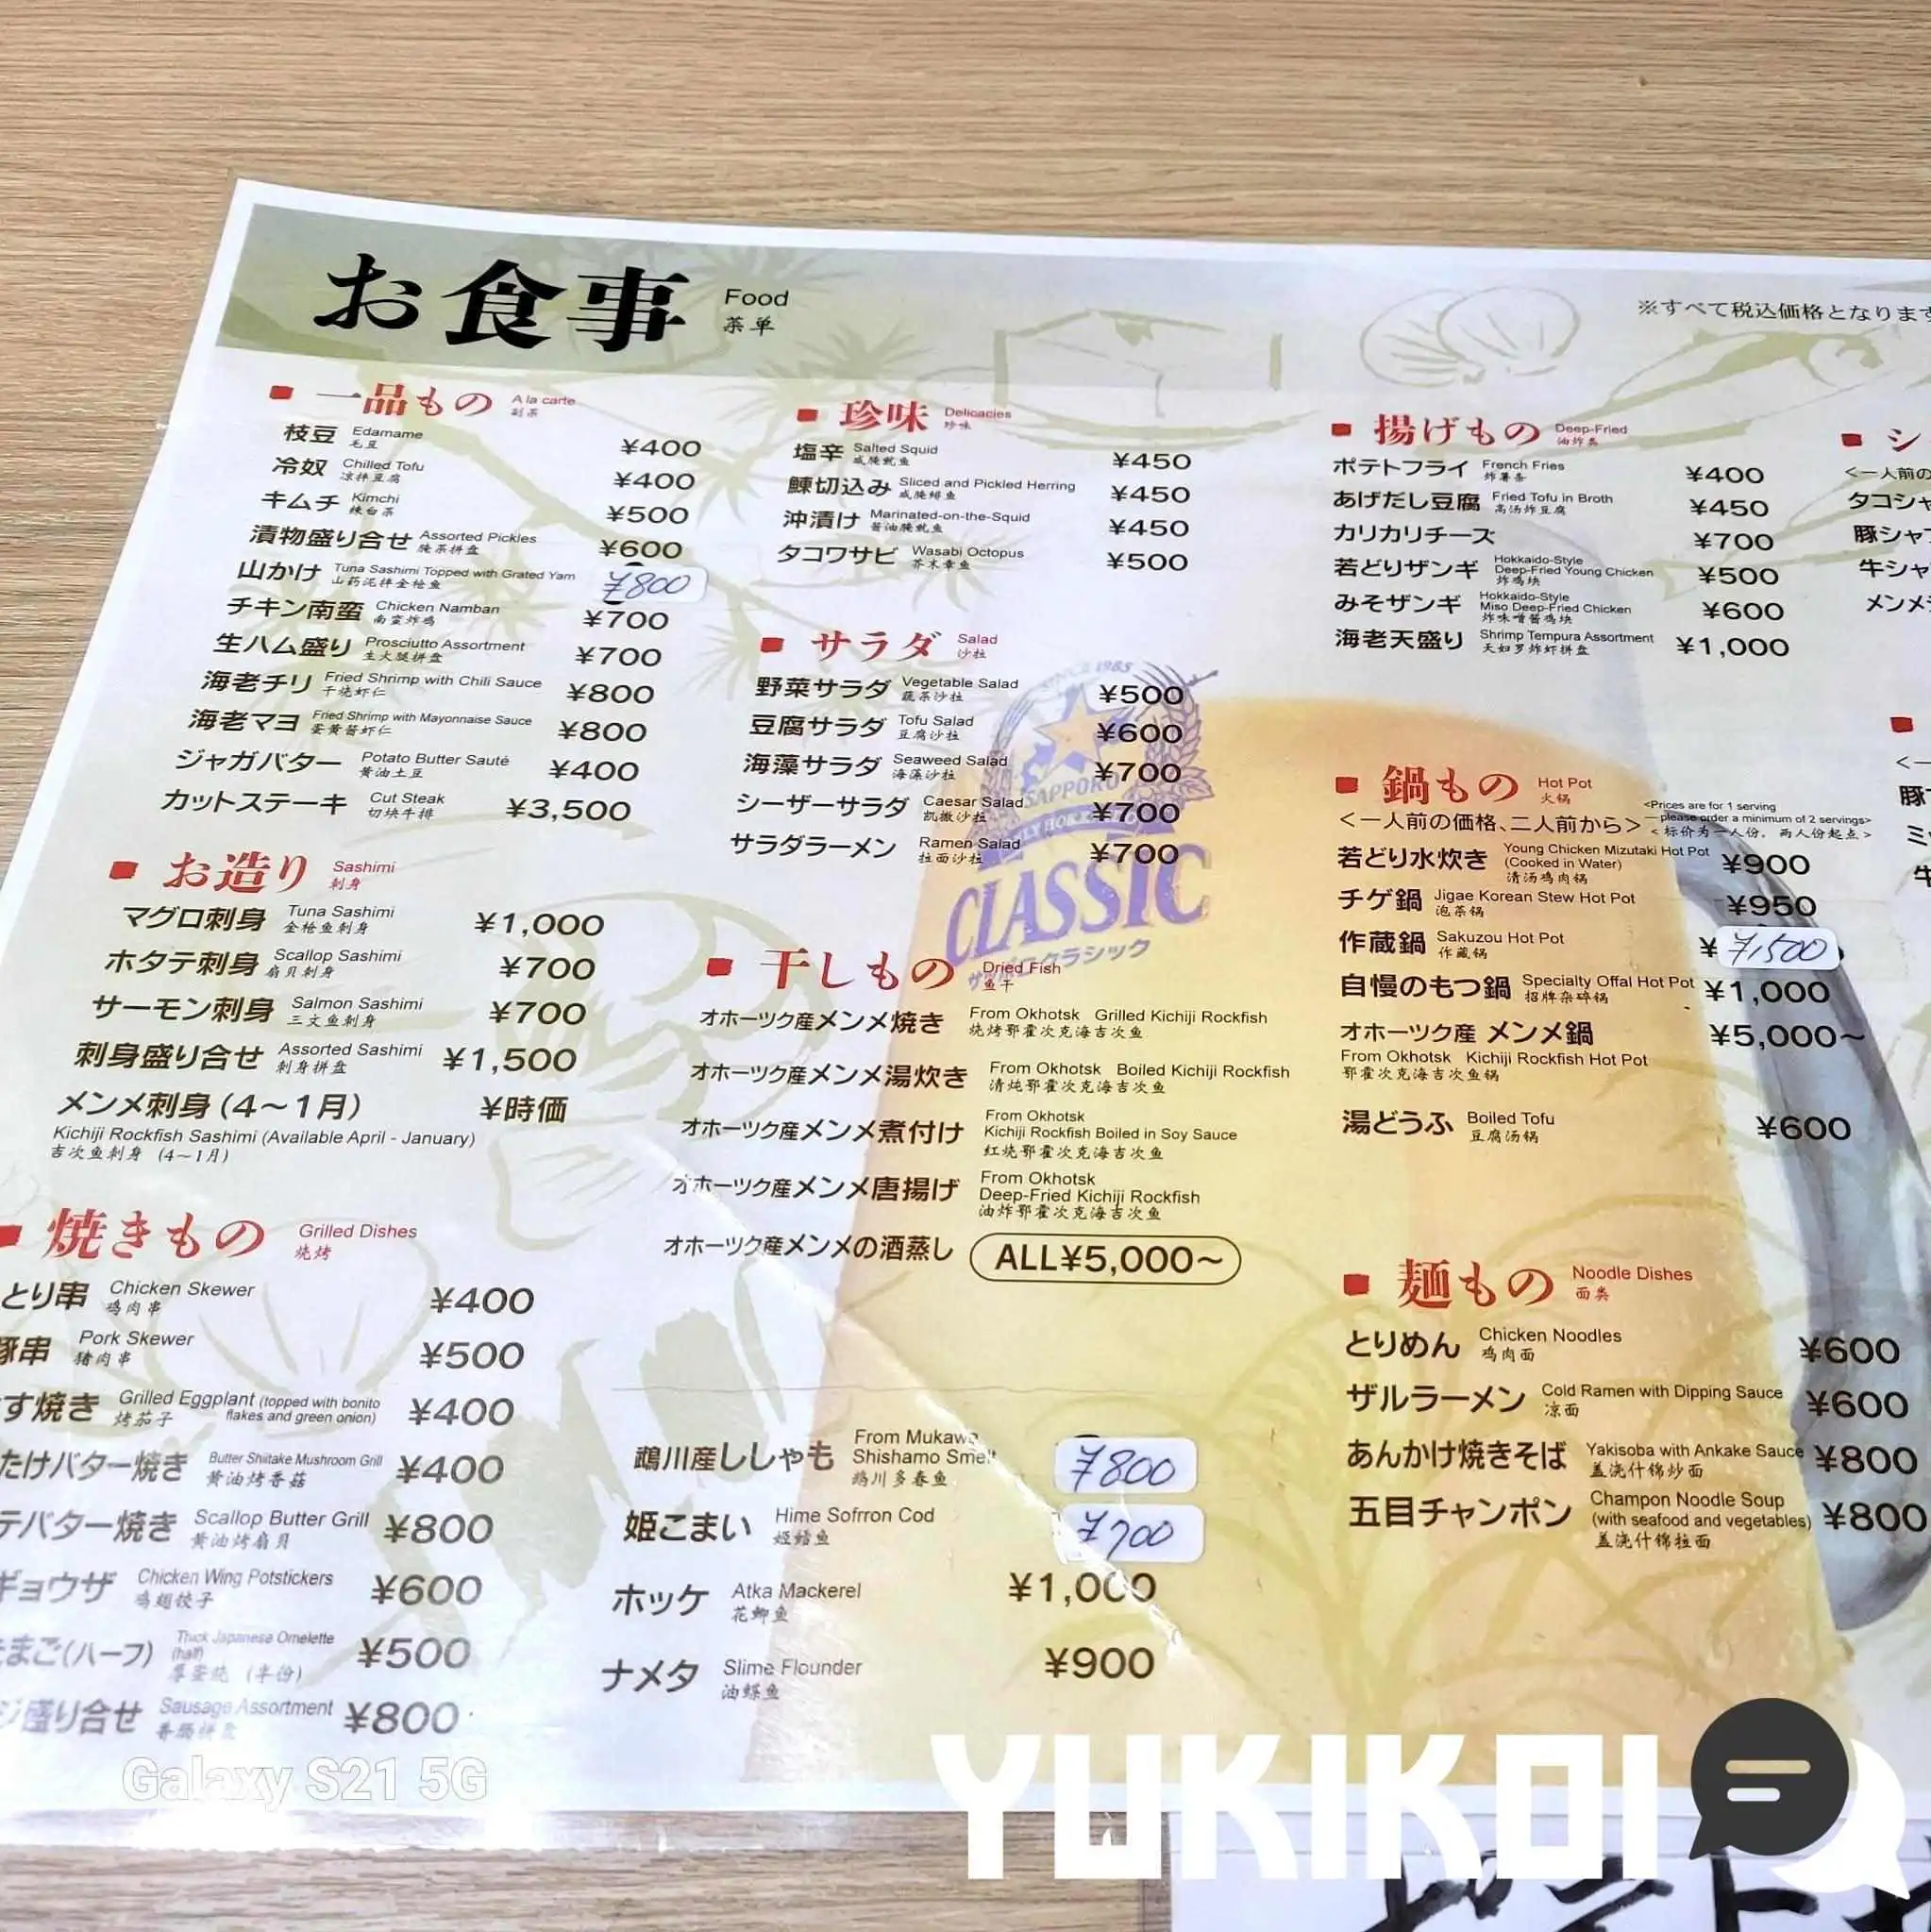 お食事
Food
菜单
※すべて税込価格となります
一品もの A la carte
副菜
枝豆 Edamame ¥400
毛豆
冷奴 Chilled Tofu ¥400
凉拌豆腐
キムチ Kimchi ¥500
辣白菜
漬物盛り合せ Assorted Pickles ¥600
腌菜拼盘
山かけ Tuna Sashimi Topped with Grated Yam ¥800
山药泥拌金枪鱼
チキン南蛮 Chicken Namban ¥700
南蛮炸鸡
生ハム盛り Prosciutto Assortment ¥700
生火腿拼盘
海老チリ Fried Shrimp with Chili Sauce ¥800
干烧虾仁
海老マヨ Fried Shrimp with Mayonnaise Sauce ¥800
蛋黄酱虾仁
ジャガバター Potato Butter Sauté ¥400
黄油土豆
カットステーキ Cut Steak ¥3,500
切块牛排
お造り Sashimi
刺身
マグロ刺身 Tuna Sashimi ¥1,000
金枪鱼刺身
ホタテ刺身 Scallop Sashimi ¥700
扇贝刺身
サーモン刺身 Salmon Sashimi ¥700
三文鱼刺身
刺身盛り合せ Assorted Sashimi ¥1,500
刺身拼盘
メンメ刺身(4～1月) ¥時価
Kichiji Rockfish Sashimi (Available April - January)
吉次鱼刺身 (4～1月)
焼きもの Grilled Dishes
烧烤
とり串 Chicken Skewer ¥400
鸡肉串
豚串 Pork Skewer ¥500
猪肉串
す焼き Grilled Eggplant (topped with bonito flakes and green onion) ¥400
烤茄子
たけバター焼き Butter Shiitake Mushroom Grill ¥400
黄油烤香菇
テバター焼き Scallop Butter Grill ¥800
黄油烤扇贝
ギョウザ Chicken Wing Potstickers ¥600
鸡翅饺子
たまご(ハーフ) Thick Japanese Omelette (half) ¥500
厚蛋烧 (半份)
ジ盛り合せ Sausage Assortment ¥800
香肠拼盘
珍味 Delicacies
珍味
塩辛 Salted Squid ¥450
咸腌鱿鱼
鰊切込み Sliced and Pickled Herring ¥450
咸腌鲱鱼
沖漬け Marinated-on-the-Squid ¥450
酱油腌鱿鱼
タコワサビ Wasabi Octopus ¥500
芥末章鱼
サラダ Salad
沙拉
野菜サラダ Vegetable Salad ¥500
蔬菜沙拉
豆腐サラダ Tofu Salad ¥600
豆腐沙拉
海藻サラダ Seaweed Salad ¥700
海藻沙拉
シーザーサラダ Caesar Salad ¥700
凯撒沙拉
サラダラーメン Ramen Salad ¥700
拉面沙拉
SINCE 1985
SAPPORO
CLASSIC
サッポロクラシック
干しもの Dried Fish
鱼干
オホーツク産メンメ焼き From Okhotsk Grilled Kichiji Rockfish
烧烤鄂霍次克海吉次鱼
オホーツク産メンメ湯炊き From Okhotsk Boiled Kichiji Rockfish
清炖鄂霍次克海吉次鱼
オホーツク産メンメ煮付け From Okhotsk
Kichiji Rockfish Boiled in Soy Sauce
红烧鄂霍次克海吉次鱼
オホーツク産メンメ唐揚げ From Okhotsk
Deep-Fried Kichiji Rockfish
油炸鄂霍次克海吉次鱼
オホーツク産メンメの酒蒸し ALL¥5,000～
鵡川産ししゃも From Mukawa
Shishamo Smelt ¥800
鹉川多春鱼
姫こまい Hime Sofrron Cod ¥700
姬鳕鱼
ホッケ Atka Mackerel ¥1,000
花鲫鱼
ナメタ Slime Flounder ¥900
油鲽鱼
揚げもの Deep-Fried
油炸类
ポテトフライ French Fries ¥400
炸薯条
あげだし豆腐 Fried Tofu in Broth ¥450
高汤炸豆腐
カリカリチーズ ¥700
若どりザンギ Hokkaido-Style
Deep-Fried Young Chicken ¥500
炸鸡块
みそザンギ Hokkaido-Style
Miso Deep-Fried Chicken ¥600
炸味噌酱鸡块
海老天盛り Shrimp Tempura Assortment ¥1,000
天妇罗炸虾拼盘
鍋もの Hot Pot
火锅
<一人前の価格、二人前から> <Prices are for 1 serving
please order a minimum of 2 servings>
<标价为一人份，两人份起点>
若どり水炊き Young Chicken Mizutaki Hot Pot
(Cooked in Water) ¥900
清汤鸡肉锅
チゲ鍋 Jigae Korean Stew Hot Pot ¥950
泡菜锅
作蔵鍋 Sakuzou Hot Pot ¥ ¥1,500
作藏锅
自慢のもつ鍋 Specialty Offal Hot Pot ¥1,000
招牌杂碎锅
オホーツク産 メンメ鍋 ¥5,000～
From Okhotsk Kichiji Rockfish Hot Pot
鄂霍次克海吉次鱼锅
湯どうふ Boiled Tofu ¥600
豆腐汤锅
麺もの Noodle Dishes
面类
とりめん Chicken Noodles ¥600
鸡肉面
ザルラーメン Cold Ramen with Dipping Sauce ¥600
凉面
あんかけ焼きそば Yakisoba with Ankake Sauce ¥800
盖浇什锦炒面
五目チャンポン Champon Noodle Soup
(with seafood and vegetables) ¥800
盖浇什锦拉面
シ
<一人前の
タコシャ
豚シャ
牛シャ
メンメ
<一
豚
ミ
牛
Galaxy S21 5G
YUKIKOI